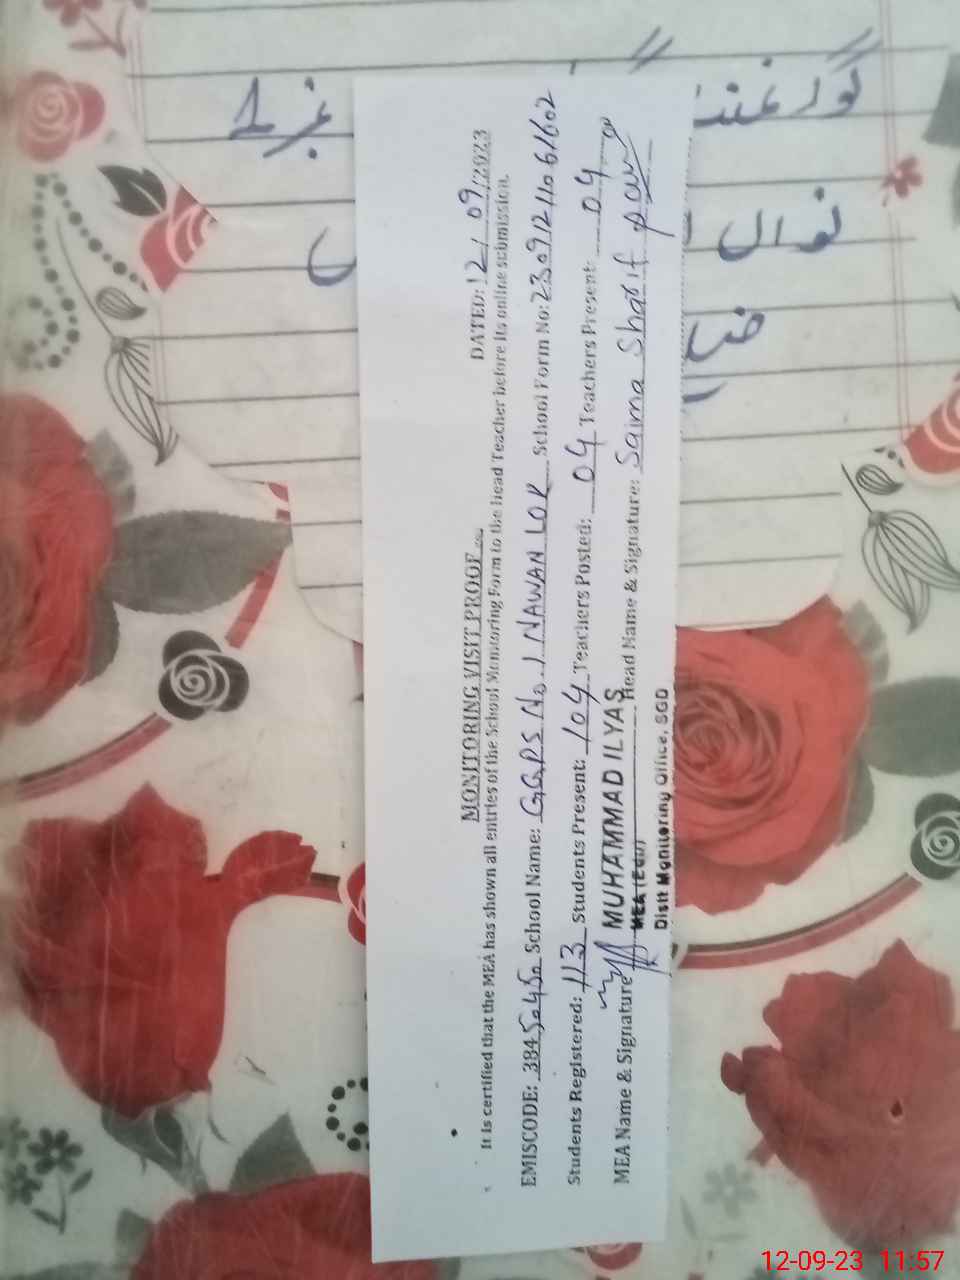 MONITORING VISIT PROOF
DATED: 12/09/2023
It is certified that the MEA has shown all entries of the School Monitoring Form to the head Teacher before its online submission.
EMISCODE: 38450450 School Name: GGPS No.1 NAWAN LOK School Form No: 23091211061602
Students Registered: 113 Students Present: 104 Teachers Posted: 04 Teachers Present: 04
MEA Name & Signature MUHAMMAD ILYAS Head Name & Signature: Saima Sharif
MEA
Distt Monitoring Office, SGD
نمبر 1
نواں ل
12-09-23 11:57